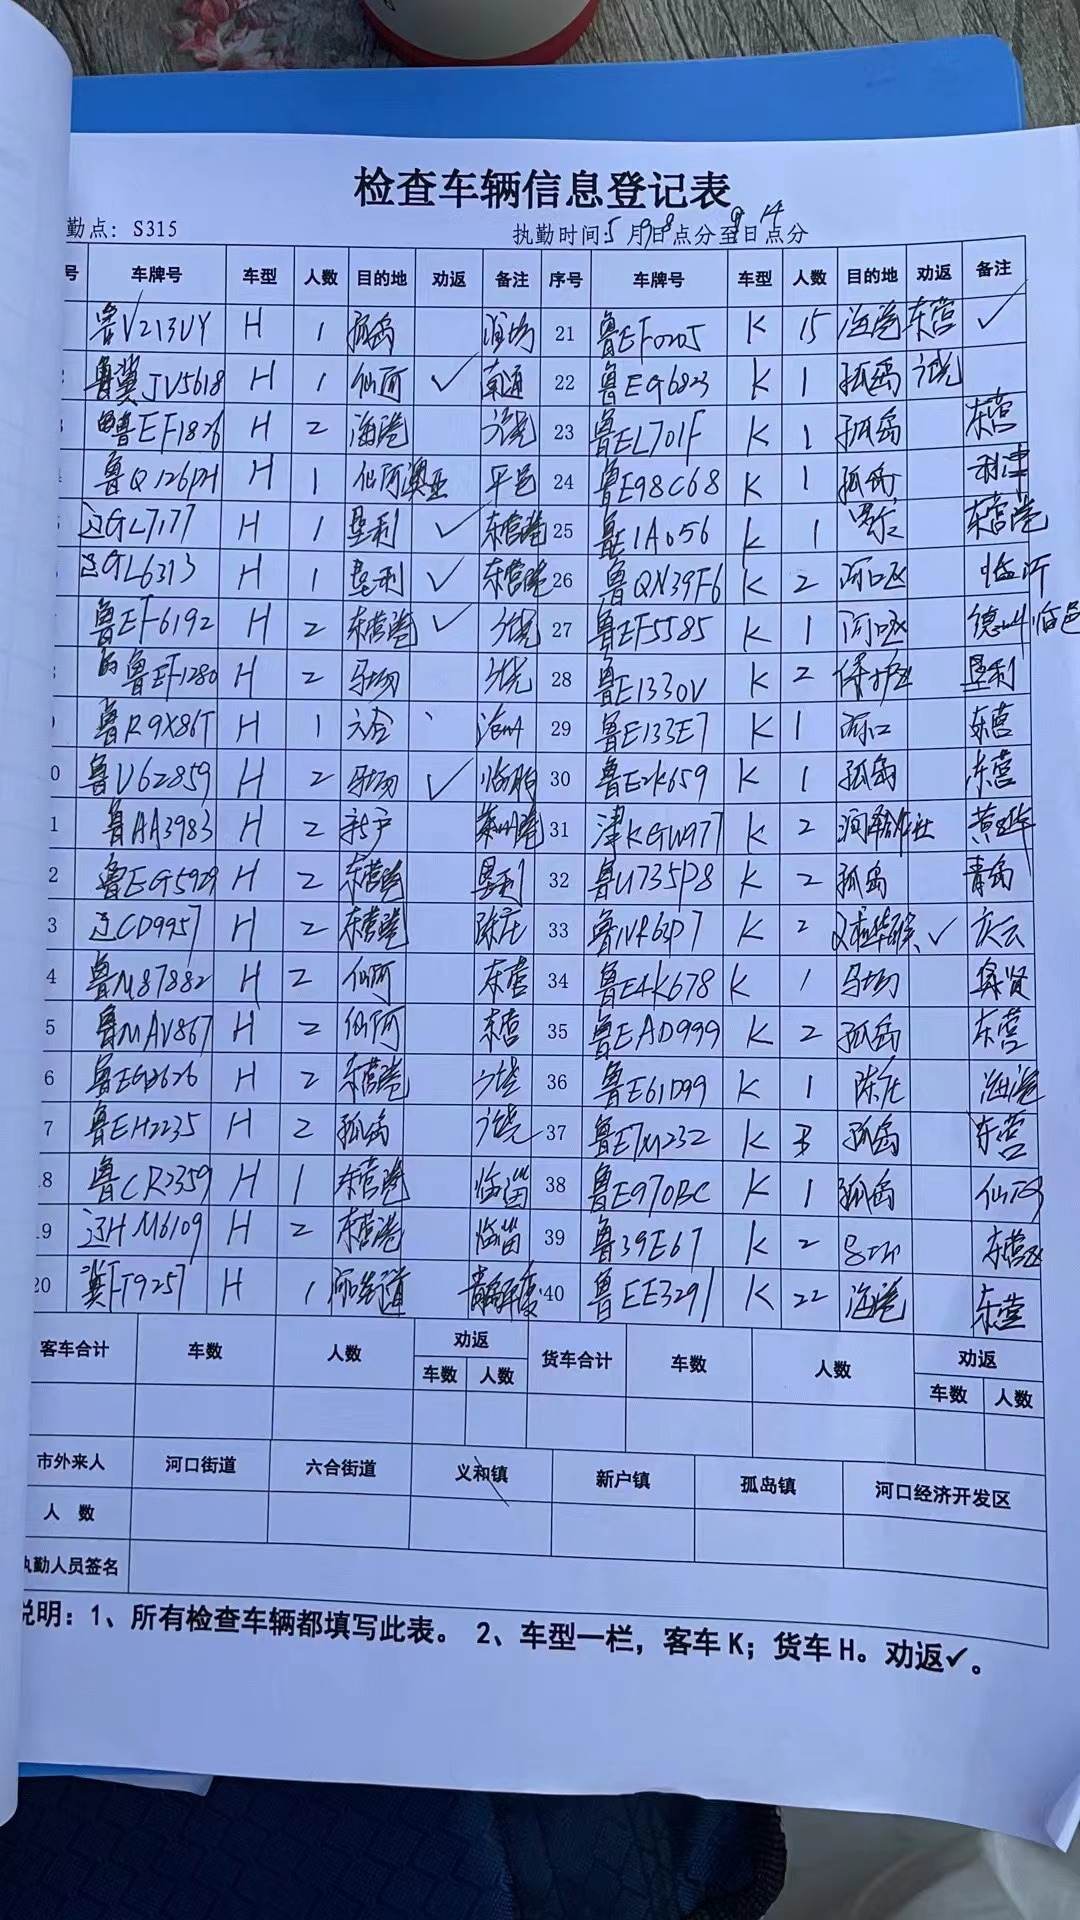 检查车辆信息登记表
勤点: S315 执勤时间:5月9日8点分至9日14点分
号 车牌号 车型 人数 目的地 劝返 备注 序号 车牌号 车型 人数 目的地 劝返 备注
鲁V213UY H 1 孤岛 潍坊 21 鲁EF0205 K 15 海港 东营 ✓
冀JV5618 H 1 仙河 ✓ 南通 22 鲁EG6823 K 1 孤岛 广饶
鲁EF1826 H 2 海港 广饶 23 鲁EL701F K 1 孤岛 东营
鲁Q126PH H 1 仙河澳亚 平邑 24 鲁E98C68 K 1 孤岛 利津
辽GL7177 H 1 垦利 ✓ 东营港 25 鲁E1A056 K 1 东营港
辽GL6313 H 1 垦利 ✓ 东营港 26 鲁QN39F6 K 2 河口区 临沂
鲁EF6192 H 2 东营港 ✓ 广饶 27 鲁EF5585 K 1 河口区 德州临邑
鲁EF1280 H 2 马场 广饶 28 鲁E1330V K 2 保护区 垦利
鲁R9X86T H 1 六合 沧州 29 鲁E133E7 K 1 河口 东营
0 鲁V62859 H 2 马场 ✓ 临朐 30 鲁E2K659 K 1 孤岛 东营
1 鲁AA3983 H 2 新户 莱州港 31 津KGW977 K 2 黄骅
2 鲁EG5929 H 2 东营港 垦利 32 鲁U735P8 K 2 孤岛 青岛
3 辽CD9957 H 2 东营港 陈庄 33 鲁NR63P7 K 2 ✓ 庆云
4 鲁M87882 H 2 仙河 东营 34 鲁E4K678 K 1 马场
5 鲁MAV867 H 2 仙河 东营 35 鲁EAD999 K 2 孤岛 东营
6 H 2 东营港 广饶 36 鲁E61D99 K 1 陈庄 海港
7 鲁EH2235 H 2 孤岛 广饶 37 鲁E7M232 K 3 孤岛 东营
18 鲁CR2359 H 1 东营港 临淄 38 鲁E970BC K 1 孤岛 仙河
19 辽HM6109 H 2 东营港 临淄 39 鲁39E67 K 2 东营区
20 冀FT9257 H 1 河口街道 青岛平度 40 鲁EE3291 K 22 海港 东营
客车合计 车数 人数 劝返 货车合计 车数 人数 劝返
车数 人数 车数 人数
市外来人 河口街道 六合街道 义和镇 新户镇 孤岛镇 河口经济开发区
人 数
执勤人员签名
说明: 1、所有检查车辆都填写此表。 2、车型一栏, 客车 K; 货车 H。劝返✓。